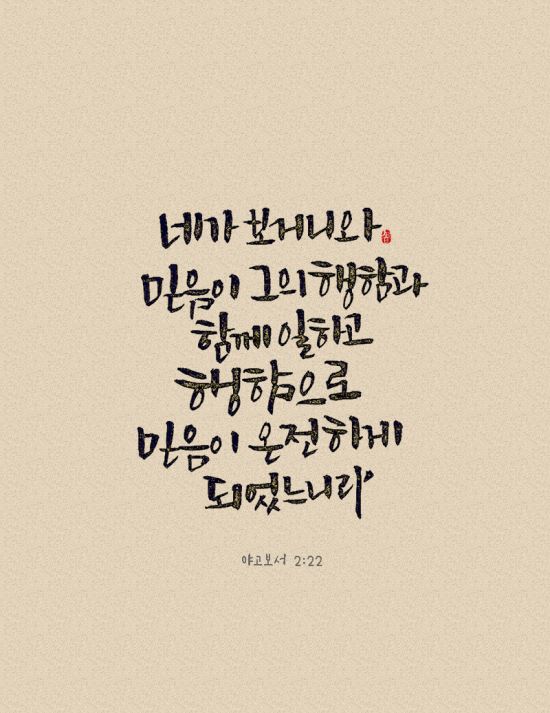 네가 보거니와
믿음이 그의 행함과
함께 일하고
행함으로
믿음이 온전하게
되었느니라
야고보서 2:22